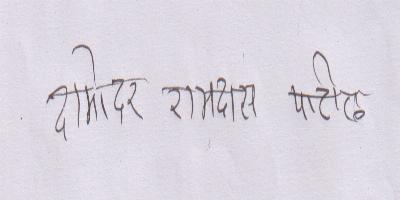 दामोदर रामदास पाटील